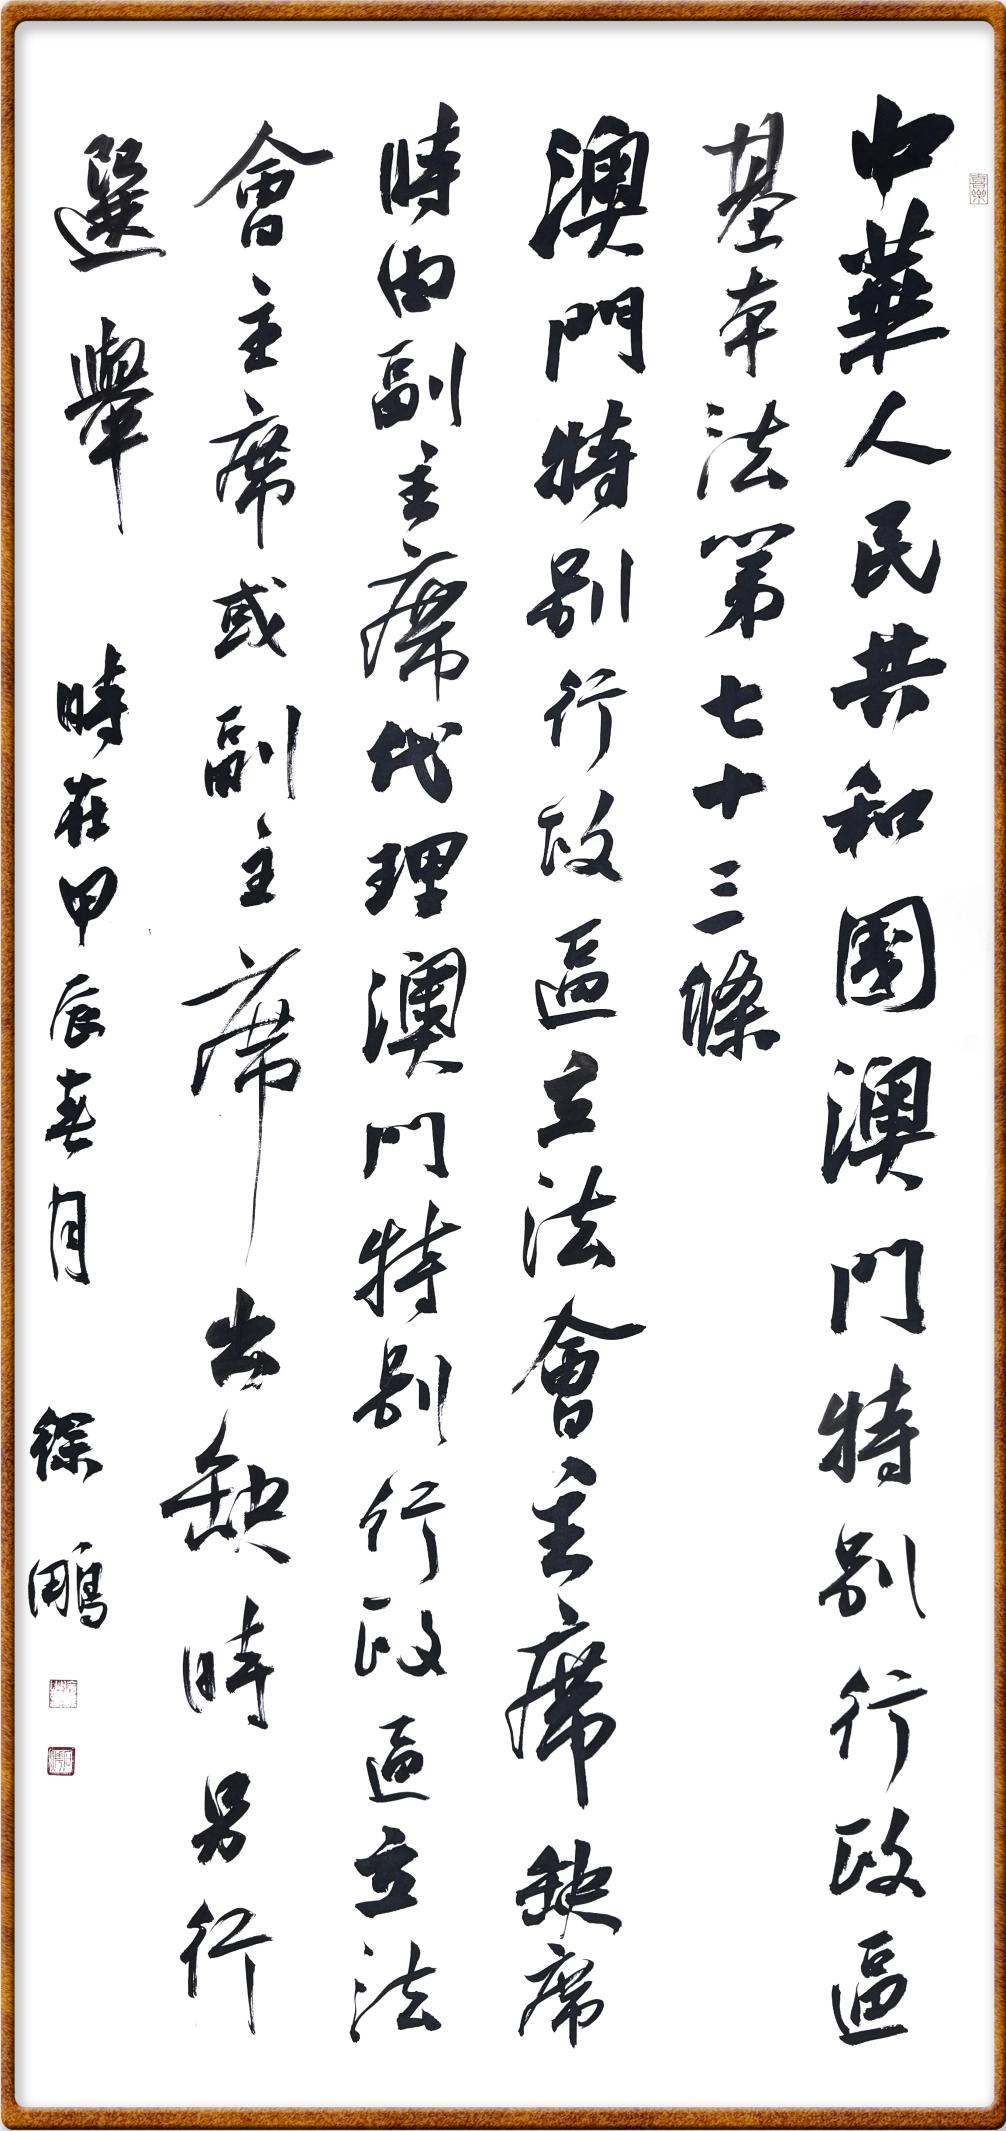 中華人民共和國澳門特別行政區
基本法第七十三條
澳門特別行政區立法會主席缺席
時由副主席代理澳門特別行政區立法
會主席或副主席出缺時另行
選舉 時在甲辰春月 徐鵬